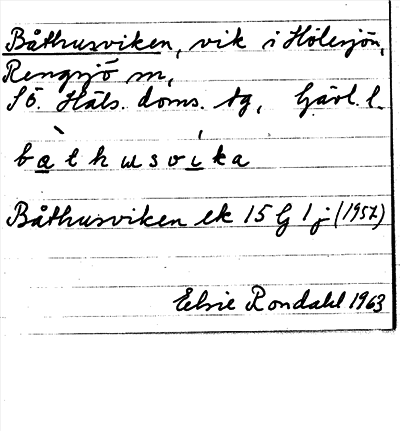 Båthusviken, vik i Hölesjön,
Rengsjö sn,
Sö. Häls. doms. tg, Gävl. l.
bàthusvíka
Båthusviken ek 15 G 1 j (1957)
Elsie Rondahl 1963